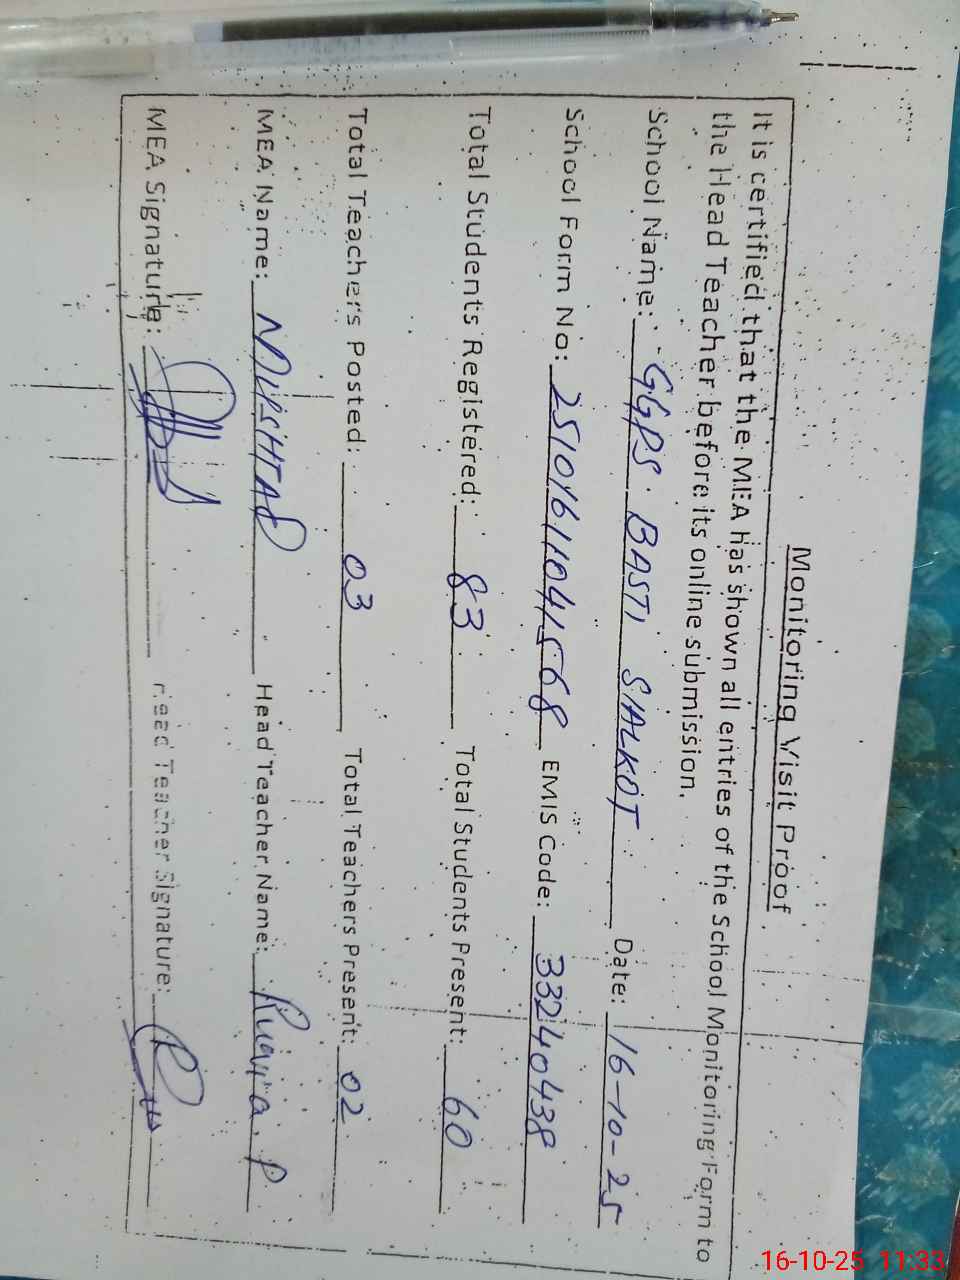 Monitoring Visit Proof
It is certified that the MEA has shown all entries of the School Monitoring Form to
the Head Teacher before its online submission.
School Name: GGPS BASTI SIALKOT Date: 16-10-25
School Form No: 25101611041568 EMIS Code: 33240438
Total Students Registered: 83 Total Students Present: 60
Total Teachers Posted: 03 Total Teachers Present: 02
MEA Name: MUSHTAQ Head Teacher Name:
MEA Signature: Head Teacher Signature:
16-10-25 11:33